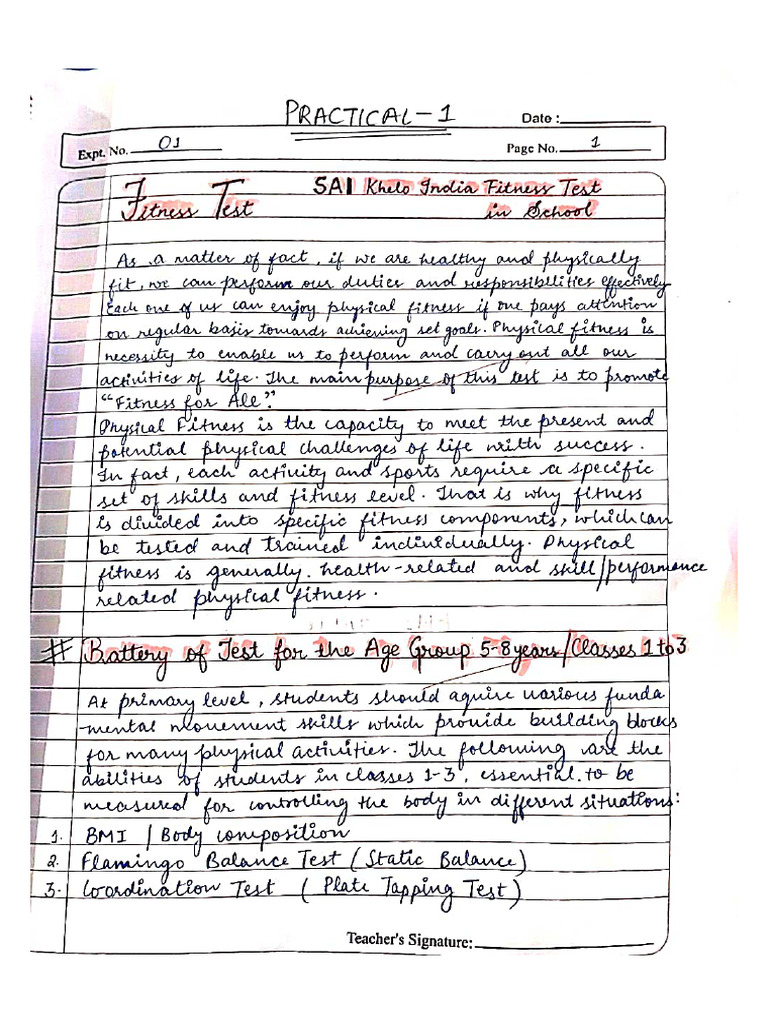 PRACTICAL-1
Date :
Expt. No. 01
Page No. 1
Fitness Test SAI Khelo India Fitness Test
in School
As a matter of fact, if we are healthy and physically
fit, we can perform our duties and responsibilities effectively
Each one of us can enjoy physical fitness if one pays attention
on regular basis towards achieving set goals. Physical fitness is
necessity to enable us to perform and carry out all our
activities of life. The main purpose of this test is to promote
"Fitness for All".
Physical Fitness is the capacity to meet the present and
potential physical challenges of life with success.
In fact, each activity and sports require a specific
set of skills and fitness level. That is why fitness
is divided into specific fitness components, which can
be tested and trained individually. Physical
fitness is generally health-related and skill/performance
related physical fitness.
# Battery of Test for the Age Group 5-8 years/Classes 1 to 3
At primary level, students should aquire various funda
-mental movement skills which provide building blocks
for many physical activities. The following are the
abilities of students in classes 1-3, essential to be
measured for controlling the body in different situations:
1. BMI / Body composition
2. Flamingo Balance Test (Static Balance)
3. Coordination Test (Plate Tapping Test)
Teacher's Signature: